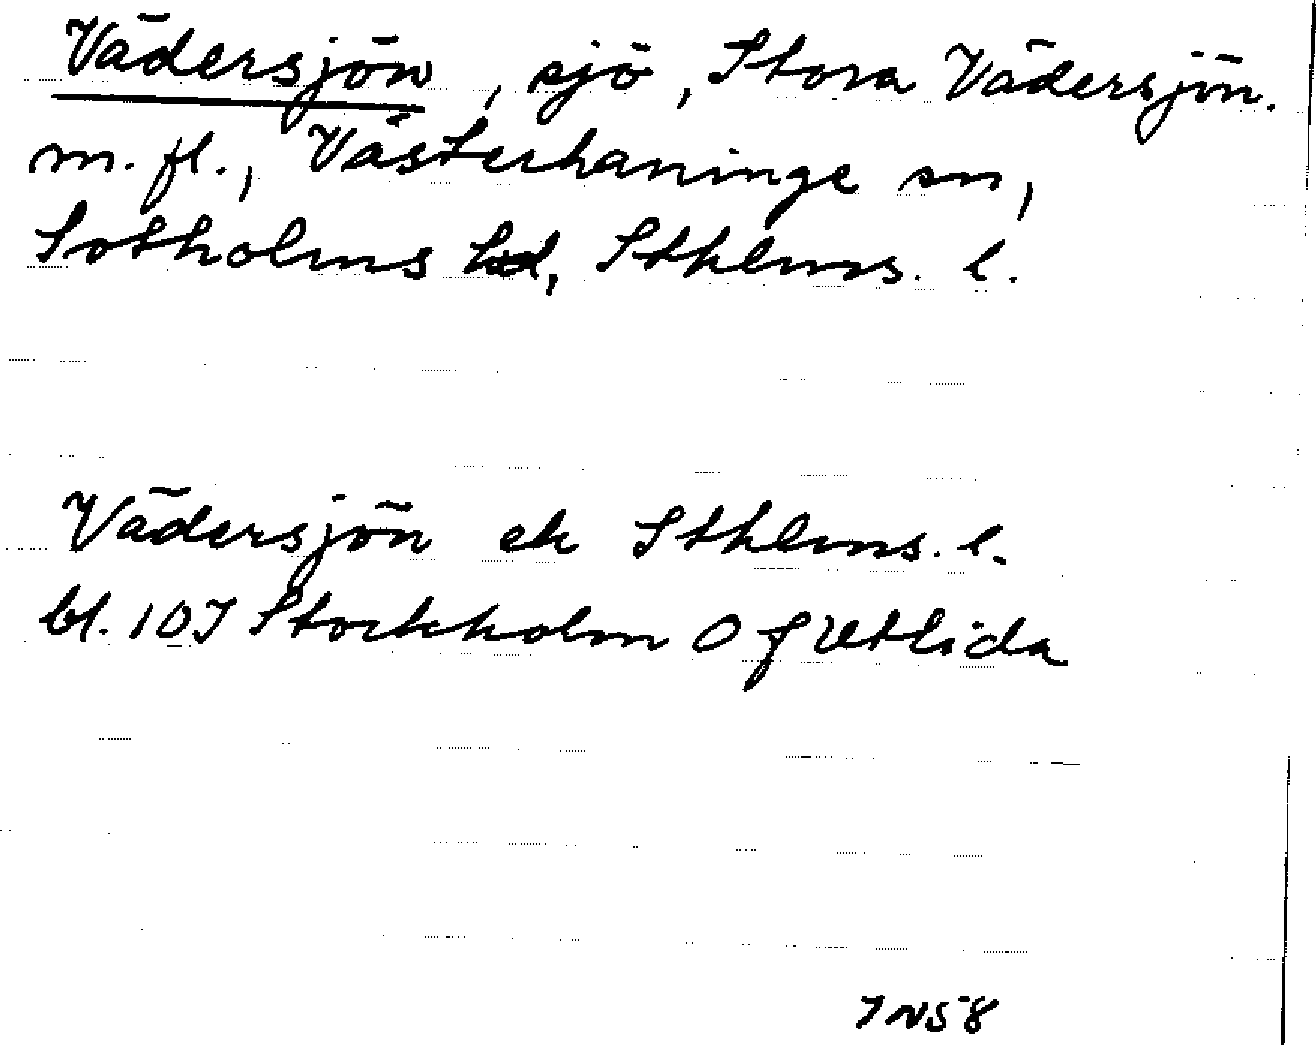 Vädersjön, sjö, Stora Vädersjön.
m. fl., Västerhaninge sn,
Sotholms hd, Sthlms. l.
Vädersjön ek Sthlms. l.
bl. 10I Stockholm O f Utlida
INS8